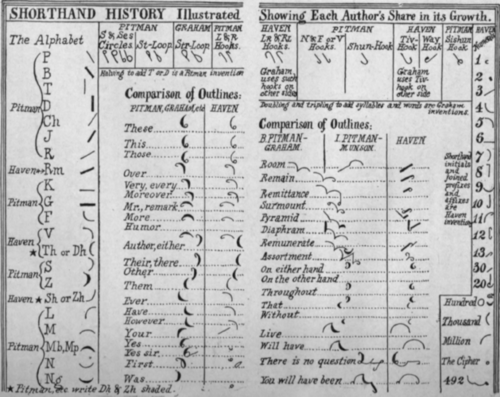 SHORTHAND HISTORY Illustrated
Showing Each Author's Share in its Growth.
The Alphabet
PITMAN
S & Ses
Circles
St-Loop
GRAHAM
Str-Loop
PITMAN
L & R
Hooks.
Halving to add T or D is a Pitman invention
Comparison of Outlines:
PITMAN, GRAHAM, etc
HAVEN
P
B
T
D
Ch
J
R
Pitman
Haven
Rm
K
G
F
Pitman
V
Th or Dh
Haven
S
Z
Pitman
Haven ★ Sh or Zh
L
M
Mb, Mp
N
Ng
Pitman
These
This
Those
Over
Very, every
Moreover
Mr., remark
More
Humor
Author, either
Their, there
Other
Them
Ever
Have
However
Your
Yes
Yes sir
First
Was
★ Pitman, etc write Dh & Zh shaded.
HAVEN
Hooks.
Graham,
uses such
hooks on
other sides
PITMAN
N & F or V
Hooks.
Shun-Hook
HAVEN
Tiv-
Hook
Way
Hook
Graham
uses Tiv-
hook on
other side
PITMAN
Hook
HAVEN
Doubling and tripling to add syllables and words are Graham
inventions.
Comparison of Outlines:
B. PITMAN-
GRAHAM.
I. PITMAN-
MUNSON.
HAVEN
Room
Remain
Remittance
Surmount
Pyramid
Diaphram
Remunerate
Assortment
On either hand
On the other hand
Throughout
That
Without
Live
Will have
There is no question
You will have been
Shorthand
initials
and
joined
prefixes
and
affixes
are
Haven
inventions
1
2
3
4
5
6
7
8
9
10
11
12
13
30
20
Hundred
Thousand
Million
The Cipher
492